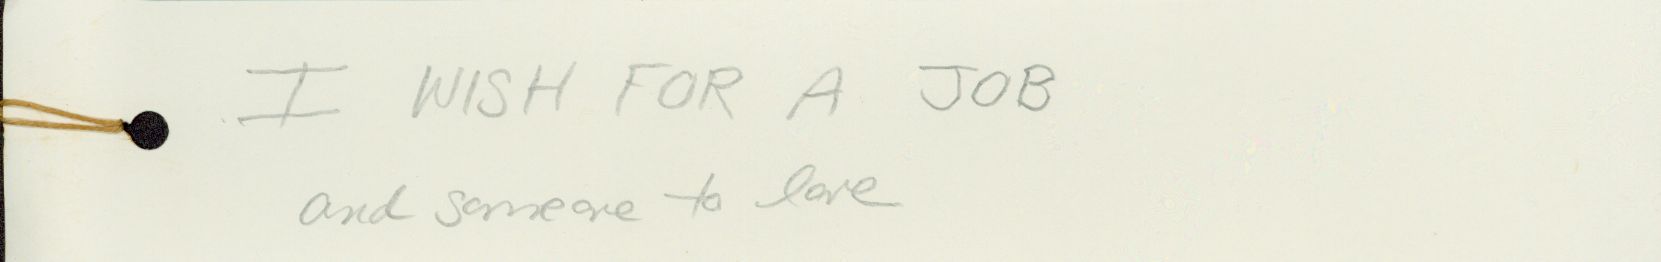 I WISH FOR A JOB
and someone to love